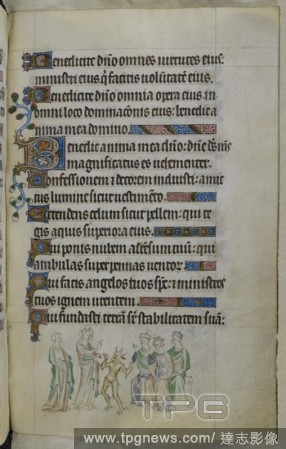 Benedicite dño omnes virtutes eius:
ministri eius q̇ facitis voluntatē eius.
Benedicite dño omnia opera eius: in
omni loco dominac̄onis eius: benedic a
nima mea domino.
Benedic anima mea dño: dñe
magnificatus es vehementer.
Confessionem ⁊ decorem induisti: amic
tus lumine sicut vestimēto.
Extendens celum sicut pellem: qui te
gis aquis superiora eius.
Qui ponis nubem ascēsum tuū: qui
ambulas super pennas ventoꝝ.
Qui facis angelos tuos sp̄c: ⁊ ministros
tuos ignem urentem.
Qui fundasti terrā sr̄ stabilitatem suā:
TPG
www.tpgnews.com/ 達志影像